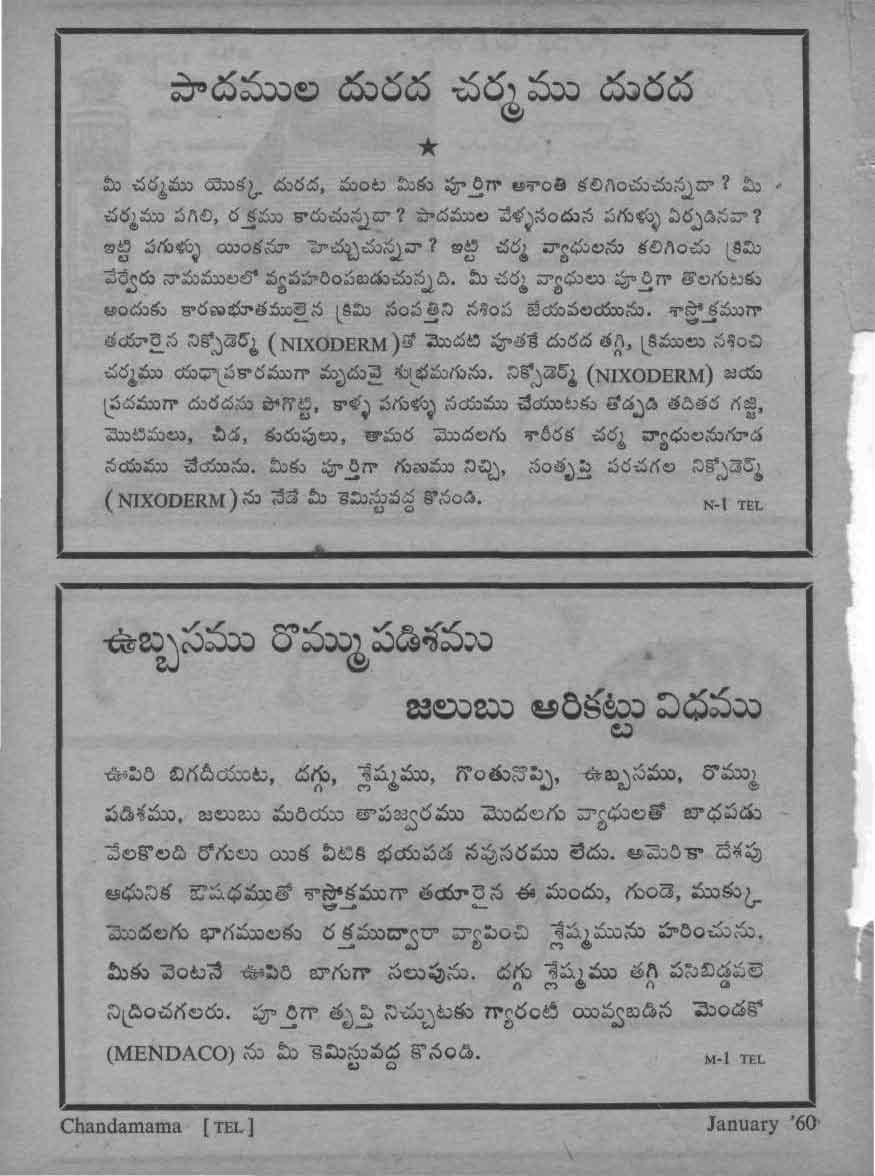 పాదముల దురద చర్మము దురద
★
మీ చర్మము యొక్క దురద, మంట మీకు పూర్తిగా అశాంతి కలిగించుచున్నదా ? మీ
చర్మము పగిలి, రక్తము కారుచున్నదా ? పాదముల వేళ్ళసందున పగుళ్ళు ఏర్పడినవా ?
ఇట్టి పగుళ్ళు యింకనూ హెచ్చుచున్నవా ? ఇట్టి చర్మ వ్యాధులను కలిగించు క్రిమి
వేర్వేరు నామములలో వ్యవహరింపబడుచున్నది. మీ చర్మ వ్యాధులు పూర్తిగా తొలగుటకు
అందుకు కారణభూతములైన క్రిమి సంపత్తిని నశింప జేయవలయును. శాస్త్రోక్తముగా
తయారైన నిక్సోడెర్మ్ (NIXODERM)తో మొదటి పూతకే దురద తగ్గి, క్రిములు నశించి
చర్మము యధాప్రకారముగా మృదువై శుభ్రమగును. నిక్సోడెర్మ్ (NIXODERM) జయ
ప్రదముగా దురదను పోగొట్టి, కాళ్ళ పగుళ్ళు నయము చేయుటకు తోడ్పడి తదితర గజ్జి,
మొటిమలు, చీడ, కురుపులు, తామర మొదలగు శారీరక చర్మ వ్యాధులనుగూడ
నయము చేయును. మీకు పూర్తిగా గుణము నిచ్చి, సంతృప్తి పరచగల నిక్సోడెర్మ్
(NIXODERM)ను నేడే మీ కెమిస్టువద్ద కొనండి.
N-1 TEL
ఉబ్బసము రొమ్ముపడిశము
జలుబు అరికట్టు విధము
ఊపిరి బిగదీయుట, దగ్గు, శ్లేష్మము, గొంతునొప్పి, ఉబ్బసము, రొమ్ము
పడిశము, జలుబు మరియు తాపజ్వరము మొదలగు వ్యాధులతో బాధపడు
వేలకొలది రోగులు యిక వీటికి భయపడ నవుసరము లేదు. అమెరికా దేశపు
ఆధునిక ఔషధముతో శాస్త్రోక్తముగా తయారైన ఈ మందు, గుండె, ముక్కు
మొదలగు భాగములకు రక్తముద్వారా వ్యాపించి శ్లేష్మమును హరించును.
మీకు వెంటనే ఊపిరి బాగుగా సలుపును. దగ్గు శ్లేష్మము తగ్గి పసిబిడ్డవలె
నిద్రించగలరు. పూర్తిగా తృప్తి నిచ్చుటకు గ్యారంటీ యివ్వబడిన మెండకో
(MENDACO) ను మీ కెమిస్టువద్ద కొనండి.
M-1 TEL
Chandamama [TEL]
January '60